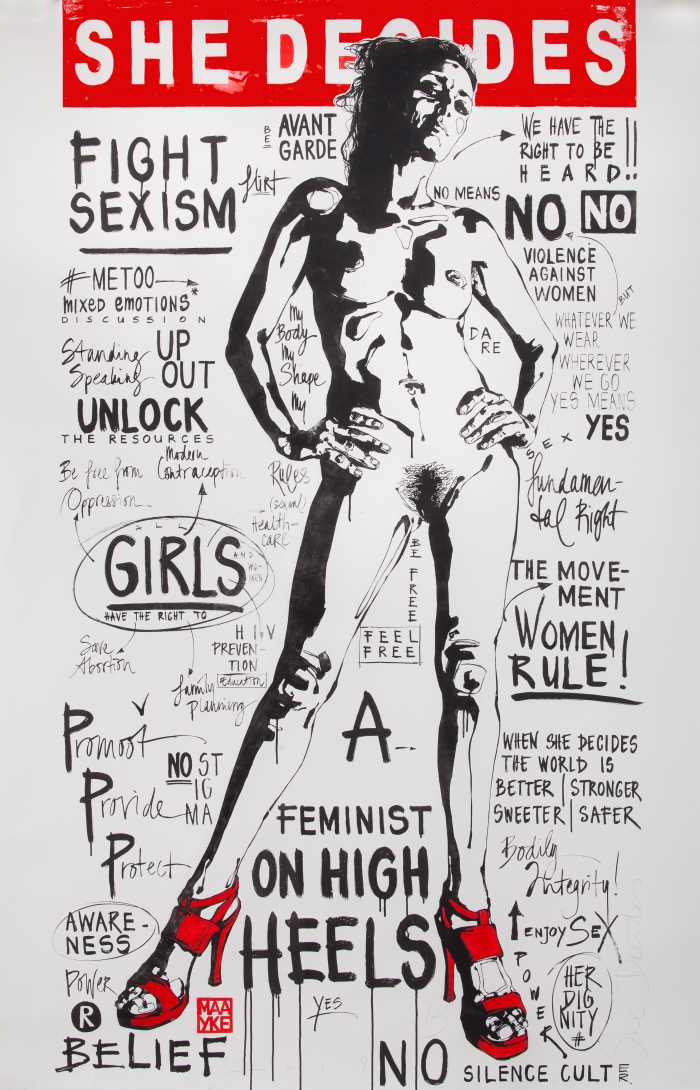 SHE DECIDES
FIGHT
SEXISM
Flirt
BE
AVANT
GARDE
WE HAVE THE
RIGHT TO BE
HEARD!!
NO MEANS
NO NO
VIOLENCE
AGAINST
WOMEN
BUT
WHATEVER WE
WEAR
WHEREVER
WE GO
YES MEANS
YES
#METOO
mixed emotions*
DISCUSSION
Standing UP
Speaking OUT
UNLOCK
THE RESOURCES
My
Body
My
Shape
My
Rules
DA
RE
SEX
Fundamen-
tal Right
Be free from
Oppression
Modern
Contraception
(sexual)
Health-
care
ALL
GIRLS
AND
WO-
MEN
HAVE THE RIGHT TO
Save
Abortion
HIV
PREVEN-
TION
education
family
planning
BE FREE
FEEL
FREE
THE MOVE-
MENT
WOMEN
RULE!
Promoot
Provide
Protect
NO ST
IG
MA
A
FEMINIST
ON HIGH
HEELS
WHEN SHE DECIDES
THE WORLD IS
BETTER | STRONGER
SWEETER | SAFER
Bodily
Integrity!
ENJOY SEX
POWER
HER
DIG
NITY
#
She Decides
AWARE-
NESS
Power
R
BELIEF
MAA
YKE
YES
NO SILENCE CULTER